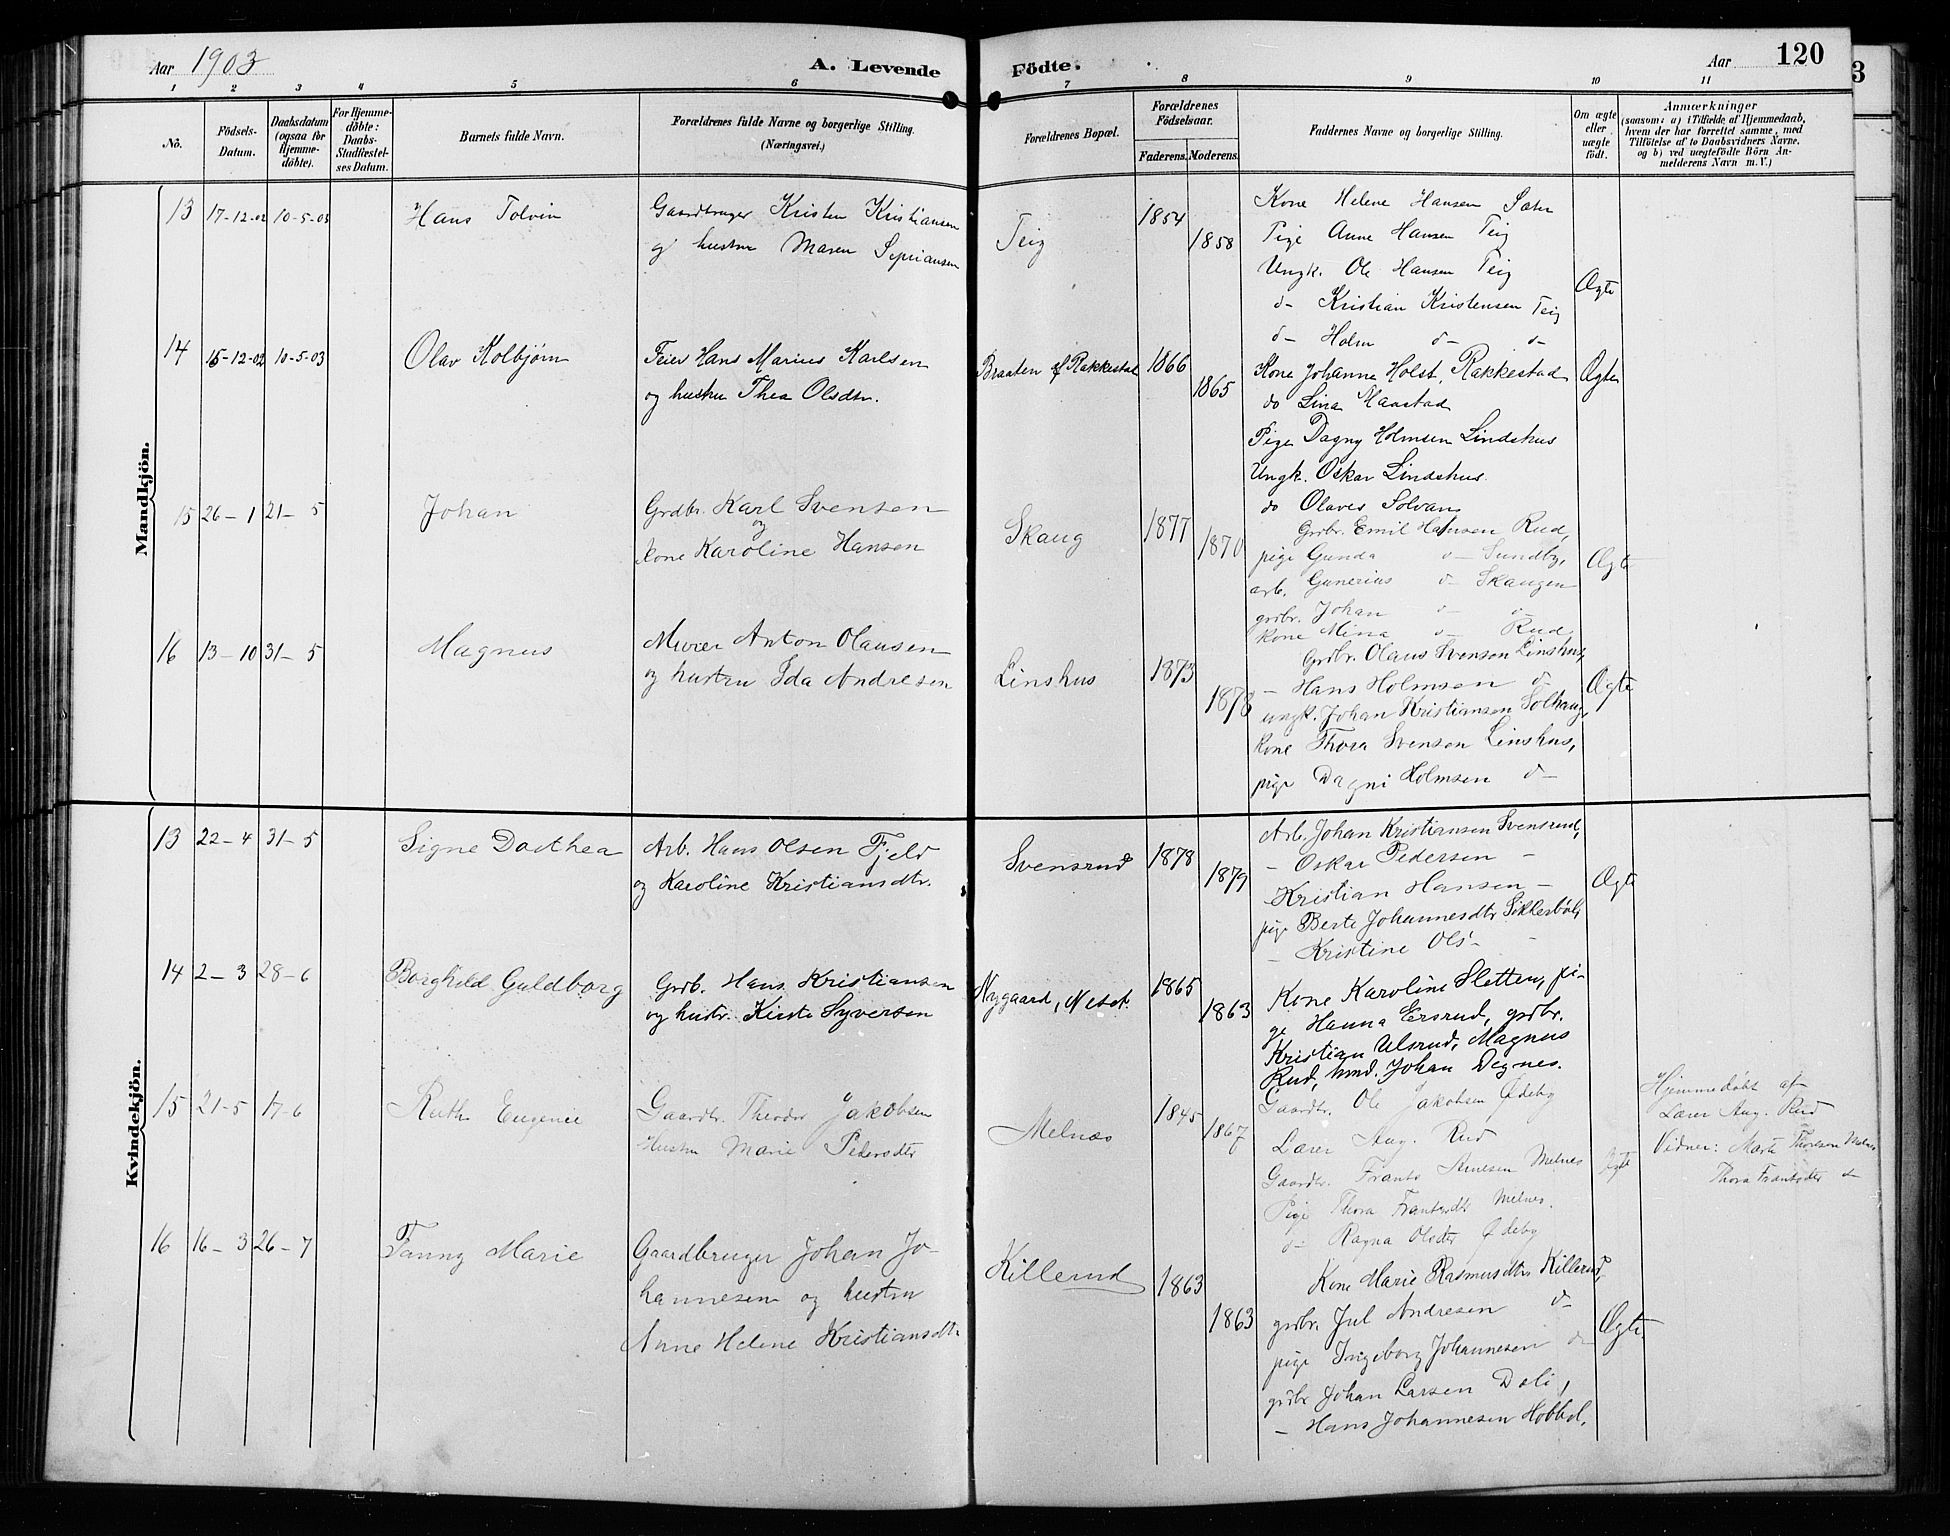 Aar 1903
A. Levende
Födte.
Aar
120
3
1 2 3 4 5 6 7 8 9 10 11
No.
Födsels-
Datum.
Daabsdatum
(ogsaa for
Hjemme-
döbte).
For Hjemme-
döbte:
Daabs-
Stadfæstel-
ses Datum.
Barnets fulde Navn.
Forældrenes fulde Navne og borgerlige Stilling.
(Næringsvei.)
Forældrenes Bopæl.
Forældrenes
Födselsaar.
Faderens.
Moderens.
Faddernes Navne og borgerlige Stilling.
Om ægte
eller
uægte
födt.
Anmærkninger
(saasom: a) i Tilfælde af Hjemmedaab,
hvem der har forrettet samme, med
Tilföielse af to Daabsvidners Navne,
og b) ved uægtefödte Börn An-
melderens Navn m. V.)
Mandkjön.
13 17-12-02 10-5-03 Hans Tolvin
Gaardbruger Kristen Kristiansen
og hustru Maren Sipriansen
Teig 1854 1858
Kone Helene Hansen Sæter
Pige Anne Hansen Teig
Ungk. Ole Hansen Teig
d- Kristian Kristensen Teig
d- Holm d- d-
Ægte
14 15-12-02 10-5-03 Olav Kolbjørn
Feier Hans Marius Karlsen
og hustru Thea Olsdtr.
Braaten af Rakkestad 1866 1865
Kone Johanne Holst, Rakkestad
do Lina Maastad
Pige Dagny Holmsen Lindshus
Ungk. Oskar Lindshus.
do Olaves Solvang
Ægte
15 26-1 21-5 Johan
Grdbr. Karl Svensen
og
kone Karoline Hansen
Skaug 1877 1870
Grdbr. Emil Hansen Rud,
pige Gunda d- Sundby,
arb. Gunerius d- Skaugen
grdbr. Johan d- d-
kone Mina d- Rud
Ægte
16 13-10 31-5 Magnus
Murer Anton Olausen
og hustru Ida Andresen
Linshus 1873 1878
Grdbr. Olaus Svensen Linshus,
- Hans Holmsen d-
ungk. Johan Kristiansen Solhaug,
kone Thora Svensen Linshus,
pige Dagni Holmsen d-
Ægte
Kvindekjön.
13 22-4 31-5 Signe Dorthea
Arb. Hans Olsen Fjeld
og Karoline Kristiansdtr.
Svensrud 1878 1879
Arb. Johan Kristiansen Svensrud,
- Oskar Pedersen -
- Kristian Hansen -
pige Berte Johannesdtr Sikkerbøl,
- Kristine Ols- -
Ægte
14 2-3 28-6 Borghild Guldborg
Grdb. Hans Kristiansen
og hustr. Kirste Syversen
Nygaard, Neset. 1865 1863
Kone Karoline Sletten, pi-
ge Hanna Ersrud, grdbr.
Kristian Ulsrud, Magnus
Rud, hmd. Johan Degnes.
15 21-5 17-6 Ruth Eugenie
Gaardbr. Theodor Jakobsen
Hustru Marie Pedersdtr
Melnæs 1845 1867
Gaardbr. Ole Jakobsen Ødeby
Lærer Aug. Rud
Gaardbr. Frants Arnesen Melnes
Pige Thora Frantsdtr Melnes.
d- Ragna Olsdtr Ødeby
Ægte
Hjemmedøbt af
Lærer Aug. Rud
Vidner: Marte Thoresen Melnes
Thora Frantsdtr d-
16 16-3 26-7 Fanny Marie
Gaardbruger Johan Jo-
hannesen og hustru
Anne Helene Kristiansdtr.
Killerud 1863 1863
Kone Marie Rasmusdtr Killerud,
grdbr. Jul Andresen d-
pige Ingeborg Johannesen d-
grdbr. Johan Larsen Dali,
- Hans Johannesen Hobbøl.
Ægte.